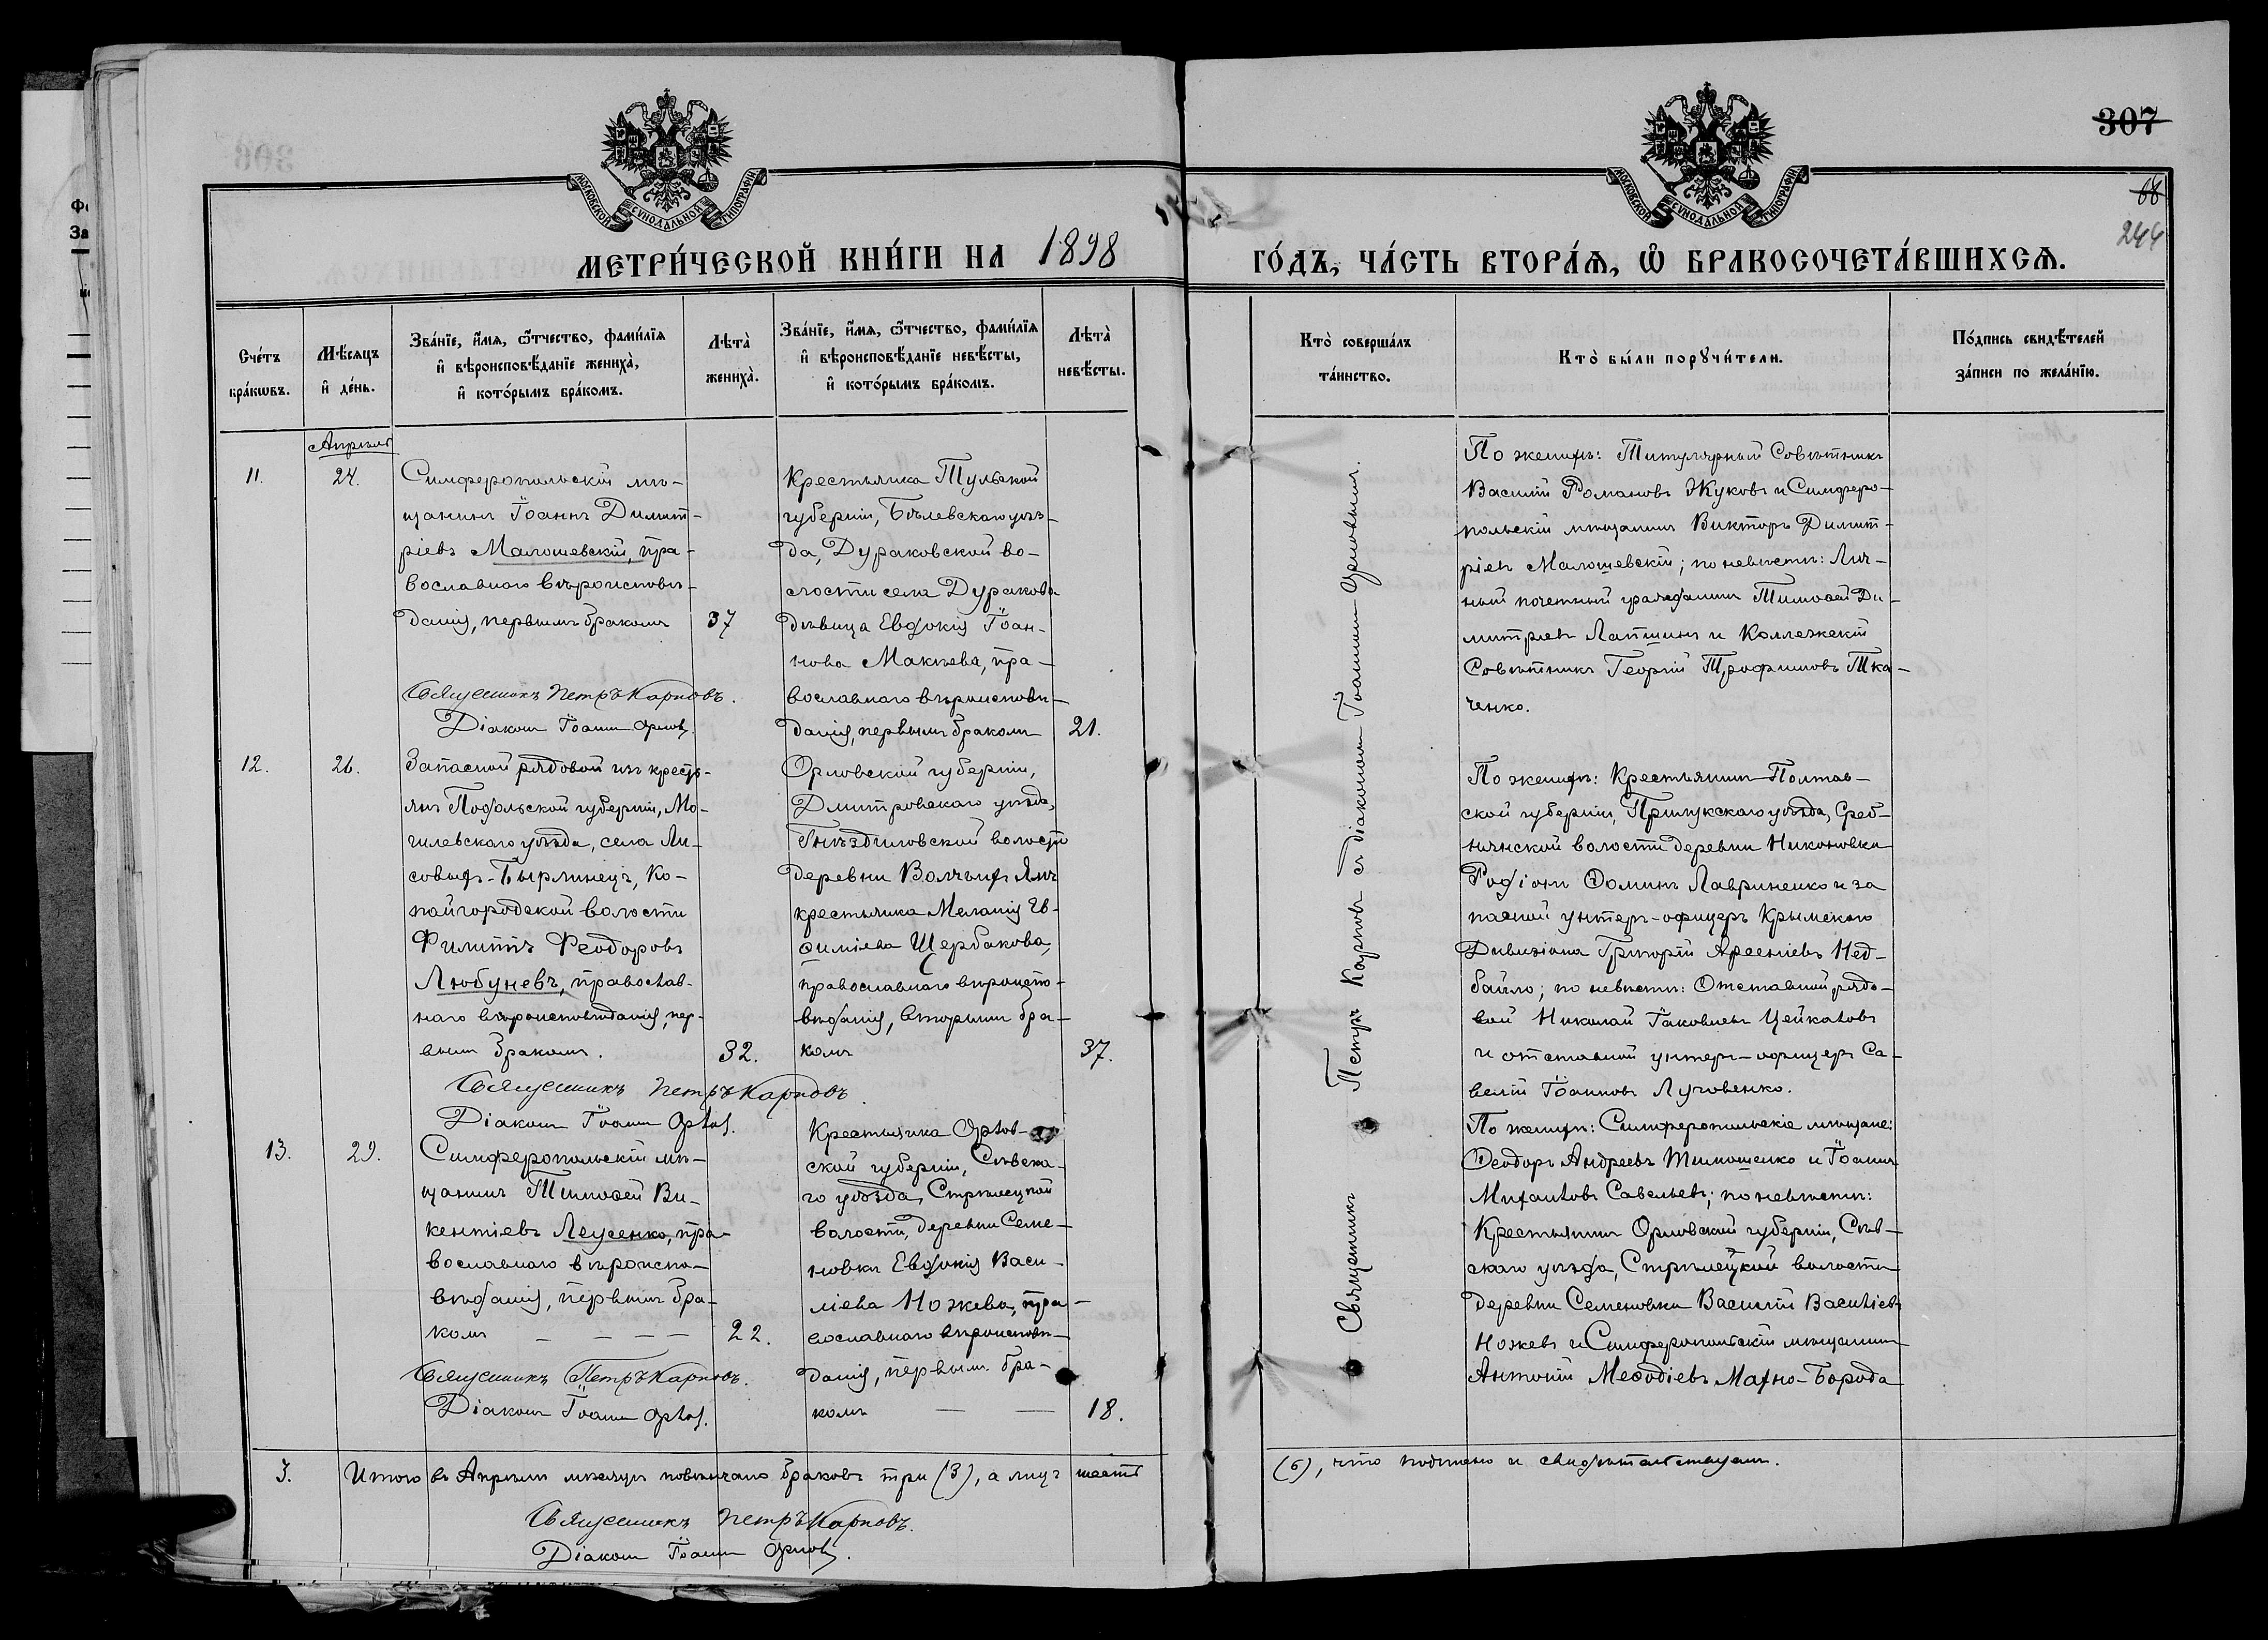 307
68
244
МОСКОВСКОЙ СѴНОДАЛЬНОЙ ТИПОГРАФІИ
МОСКОВСКОЙ СѴНОДАЛЬНОЙ ТИПОГРАФІИ
МЕТРИ́ЧЕСКОЙ КНИ́ГИ НА 1898 ГО́ДЪ, ЧА́СТЬ ВТОРА́Ѧ, Ѽ БРАКОСОЧЕТА́ВШИХСѦ.
Сче́тъ
бра́кѡвъ.
Мѣ́сяцъ
и҆ де́нь.
Зва́нїе, и҆́мѧ, ѻ҆́тчество, фами́лїѧ
и҆ вѣроисповѣ́данїе жениха̀,
и҆ кото́рымъ бра́комъ.
Лѣта̀
жениха̀.
Зва́нїе, и҆́мѧ, ѻ҆́тчество, фами́лїѧ
и҆ вѣроисповѣ́данїе невѣ́сты,
и҆ кото́рымъ бра́комъ.
Лѣта̀
невѣ́сты.
Кто̀ соверша́лъ
та́инство.
Кто̀ бы́ли порꙋчи́тели.
По́дпись свидѣ́телей
за́писи по жела́нїю.
Апрѣль
11.
24.
Симферопольскій мѣ-
щанинъ Іоаннъ Димит-
ріевъ Малошевскій, пра-
вославнаго вѣроисповѣ-
данія, первымъ бракомъ
37
Священникъ Петръ Карповъ.
Діаконъ Іоаннъ Орловъ.
Крестьянка Тульской
губерніи, Бѣлевскаго уѣз-
да, Дураковской во-
лости села Дураково
дѣвица Евдокія Іоан-
нова Макѣева, пра-
вославнаго вѣроисповѣ-
данія, первымъ бракомъ
21.
По женихѣ: Титулярный Совѣтникъ
Василій Романовъ Жуковъ и Симферо-
польскій мѣщанинъ Викторъ Димит-
ріевъ Малошевскій; по невѣстѣ: Лич-
ный почетный гражданинъ Тимоѳей Ди-
митріевъ Лапшинъ и Коллежскій
Совѣтникъ Георгій Трофимовъ Тка-
ченко.
12.
26.
Запасной рядовой изъ кресть-
янъ Подольской губерніи, Мо-
гилевскаго уѣзда, села Ли-
совыхъ-Бырлинецъ, Ко-
пайгородской волости
Филиппъ Феодоровъ
Любуневъ, православ-
наго вѣроисповѣданія, пер-
вымъ бракомъ.
32.
Священникъ Петръ Карповъ.
Діаконъ Іоаннъ Орловъ.
Орловской губерніи,
Дмитровскаго уѣзда,
Гнѣздиловской волости
деревни Волчьихъ Ямъ
крестьянка Меланія Ев-
ѳиміева Щербакова,
православнаго вѣроиспо-
вѣданія, вторымъ бра-
комъ
37.
По женихѣ: Крестьянинъ Полтав-
ской губерніи, Прилукскаго уѣзда, Среб-
нянской волости деревни Никоновки
Родіонъ Ѳоминъ Лавриненко и за
пасной унтеръ-офицеръ Крымскаго
Дивизіона Григорій Арсеніевъ Нед-
байло; по невѣстѣ: Отставной рядо-
вой Николай Іаковлевъ Цейкаловъ
и отставной унтеръ-офицеръ Са-
велій Іоанновъ Луговенко.
13.
29.
Симферопольскій мѣ-
щанинъ Тимоѳей Ви-
кентіевъ Леусенко, пра-
вославнаго вѣроиспо-
вѣданія, первымъ бра-
комъ
22.
Священникъ Петръ Карповъ.
Діаконъ Іоаннъ Орловъ.
Крестьянка Орлов-
ской губерніи, Сѣвска-
го уѣзда, Стрѣлецкой
волости, деревни Семе-
новки Евдокія Васи-
ліева Ножева, пра-
вославнаго вѣроисповѣ-
данія, первымъ бра-
комъ
18.
По женихѣ: Симферопольскіе мѣщане:
Ѳеодоръ Андреевъ Тимошенко и Іоаннъ
Михаиловъ Савельевъ; по невѣстѣ:
Крестьянинъ Орловской губерніи, Сѣв-
скаго уѣзда, Стрѣлецкой волости
деревни Семеновки Василій Василіевъ
Ножевъ и Симферопольскій мѣщанинъ
Антоній Меѳодіевъ Махно-Борода
Священникъ Петръ Карповъ съ діакономъ Іоанномъ Орловымъ.
3.
Итого въ Апрѣлѣ мѣсяцѣ повѣнчано браковъ три (3), а лицъ шесть
(6), что подписью и свидѣтельствуемъ.
Священникъ Петръ Карповъ.
Діаконъ Іоаннъ Орловъ.